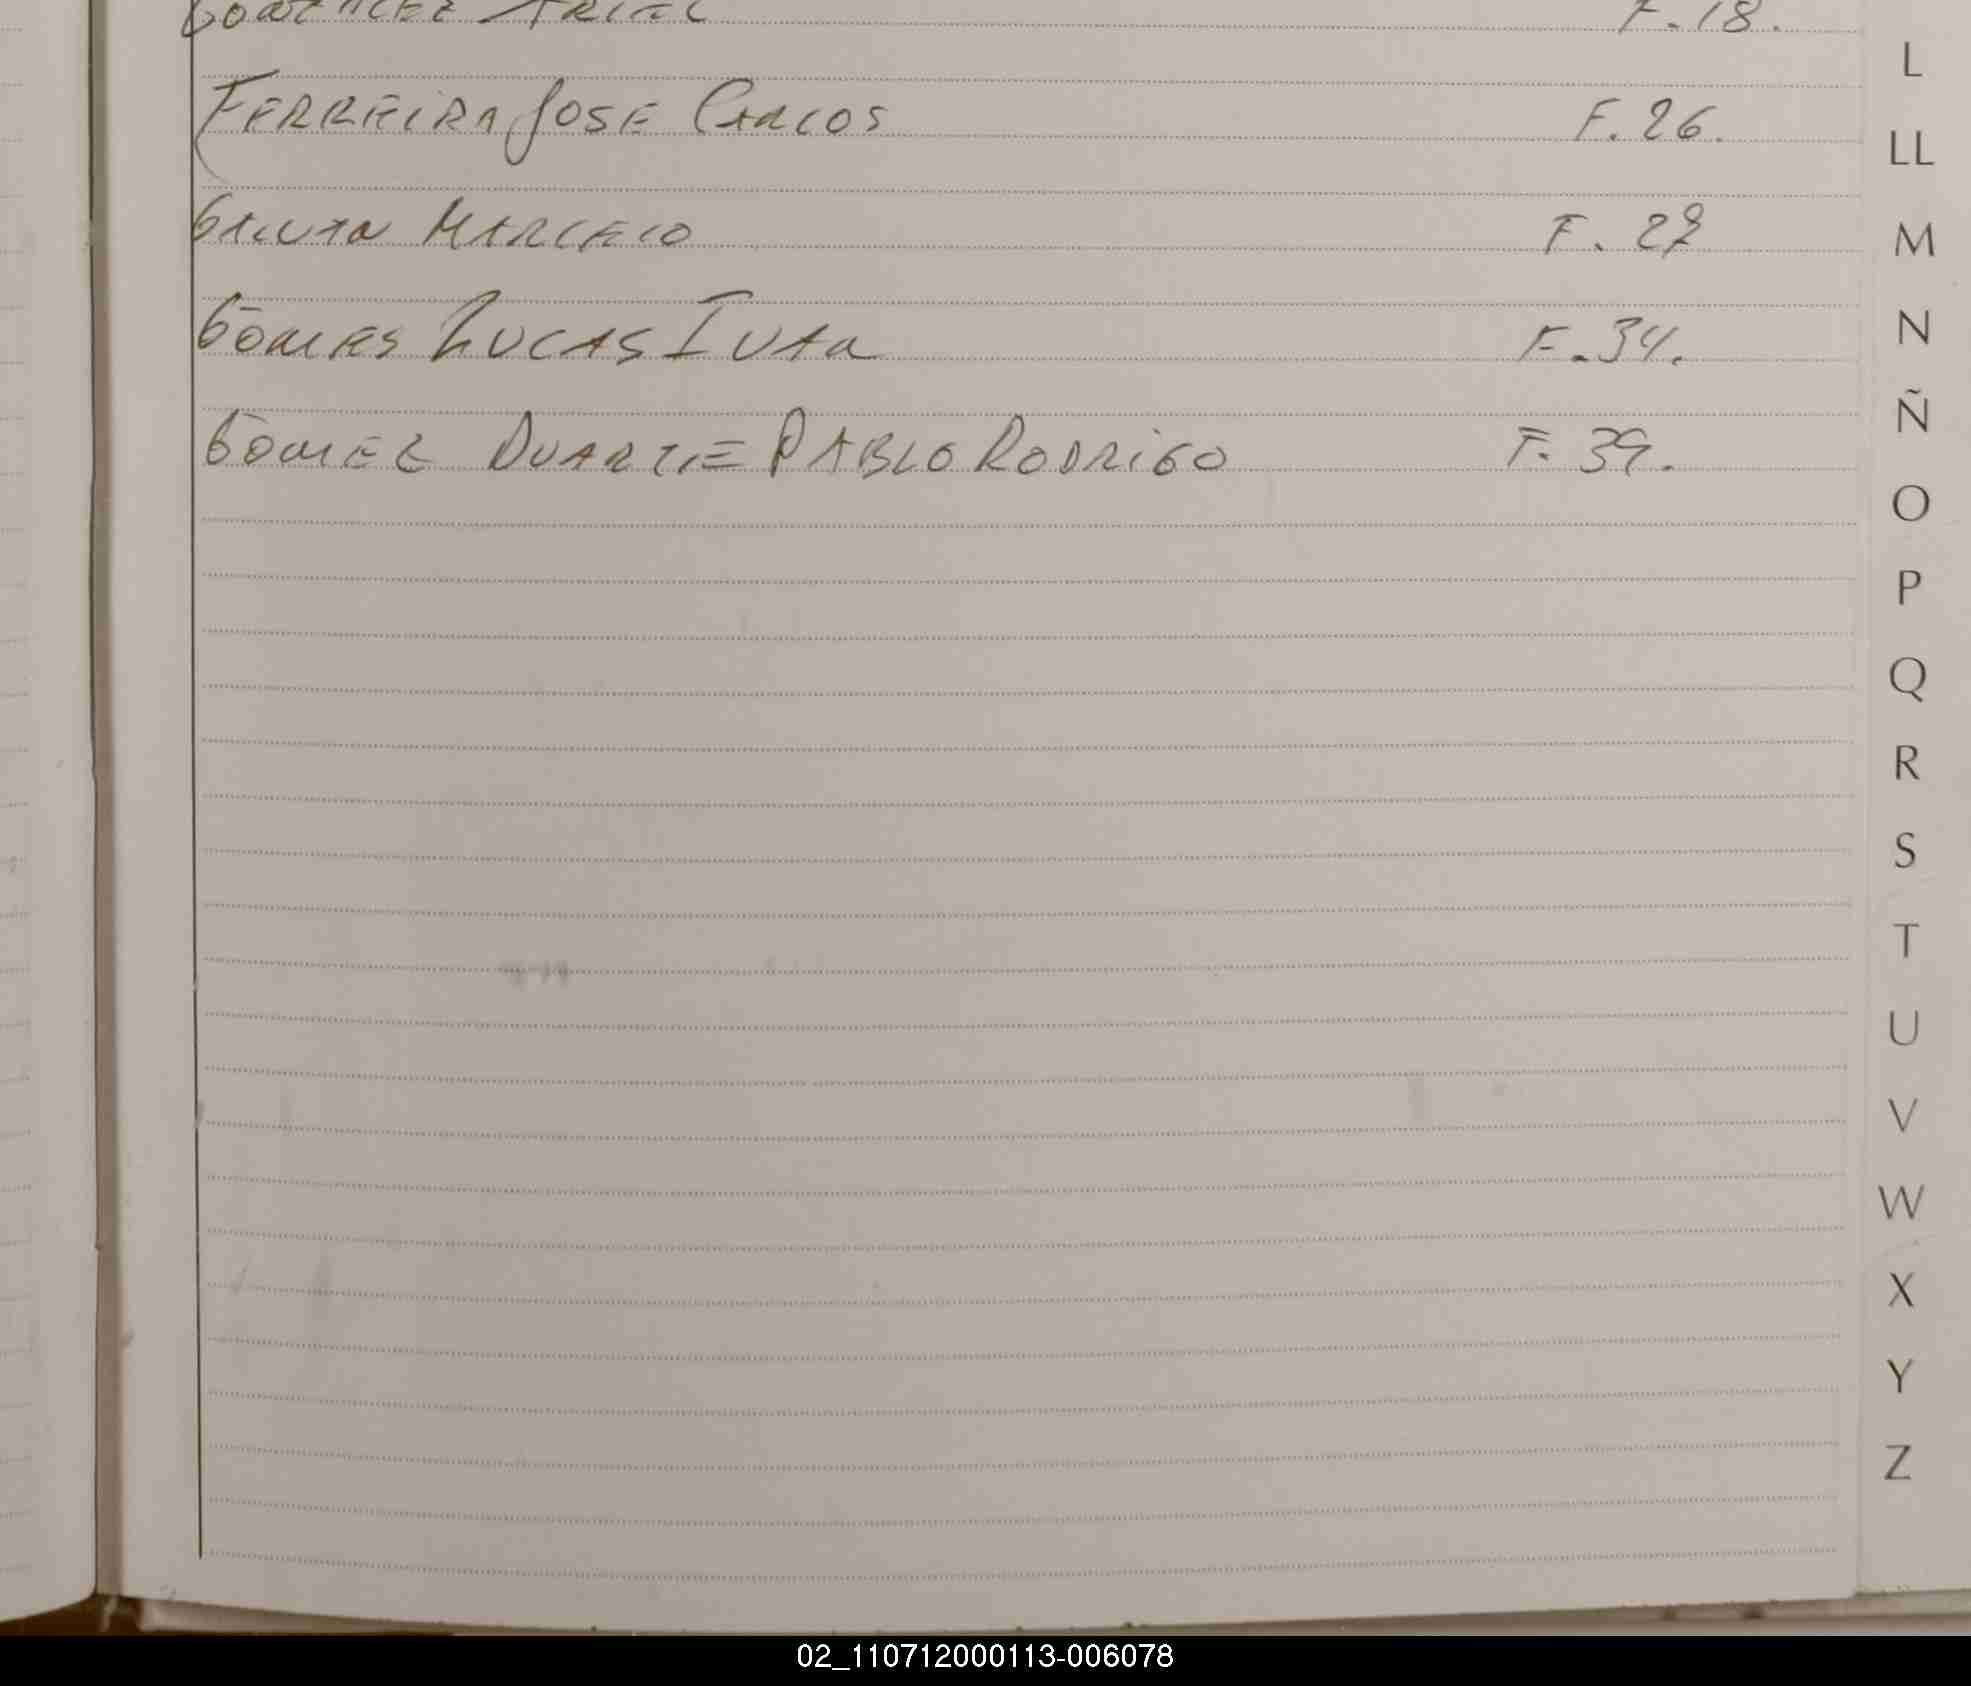 GONZALEZ ARIEL F. 18.
FERREIRA JOSE CARLOS F. 26.
GALVAN MARCELO F. 27
GOMES LUCAS IVAN F. 34.
GOMEZ DUARTE PABLO RODRIGO F. 39.
L
LL
M
N
Ñ
O
P
Q
R
S
T
U
V
W
X
Y
Z
02_110712000113-006078